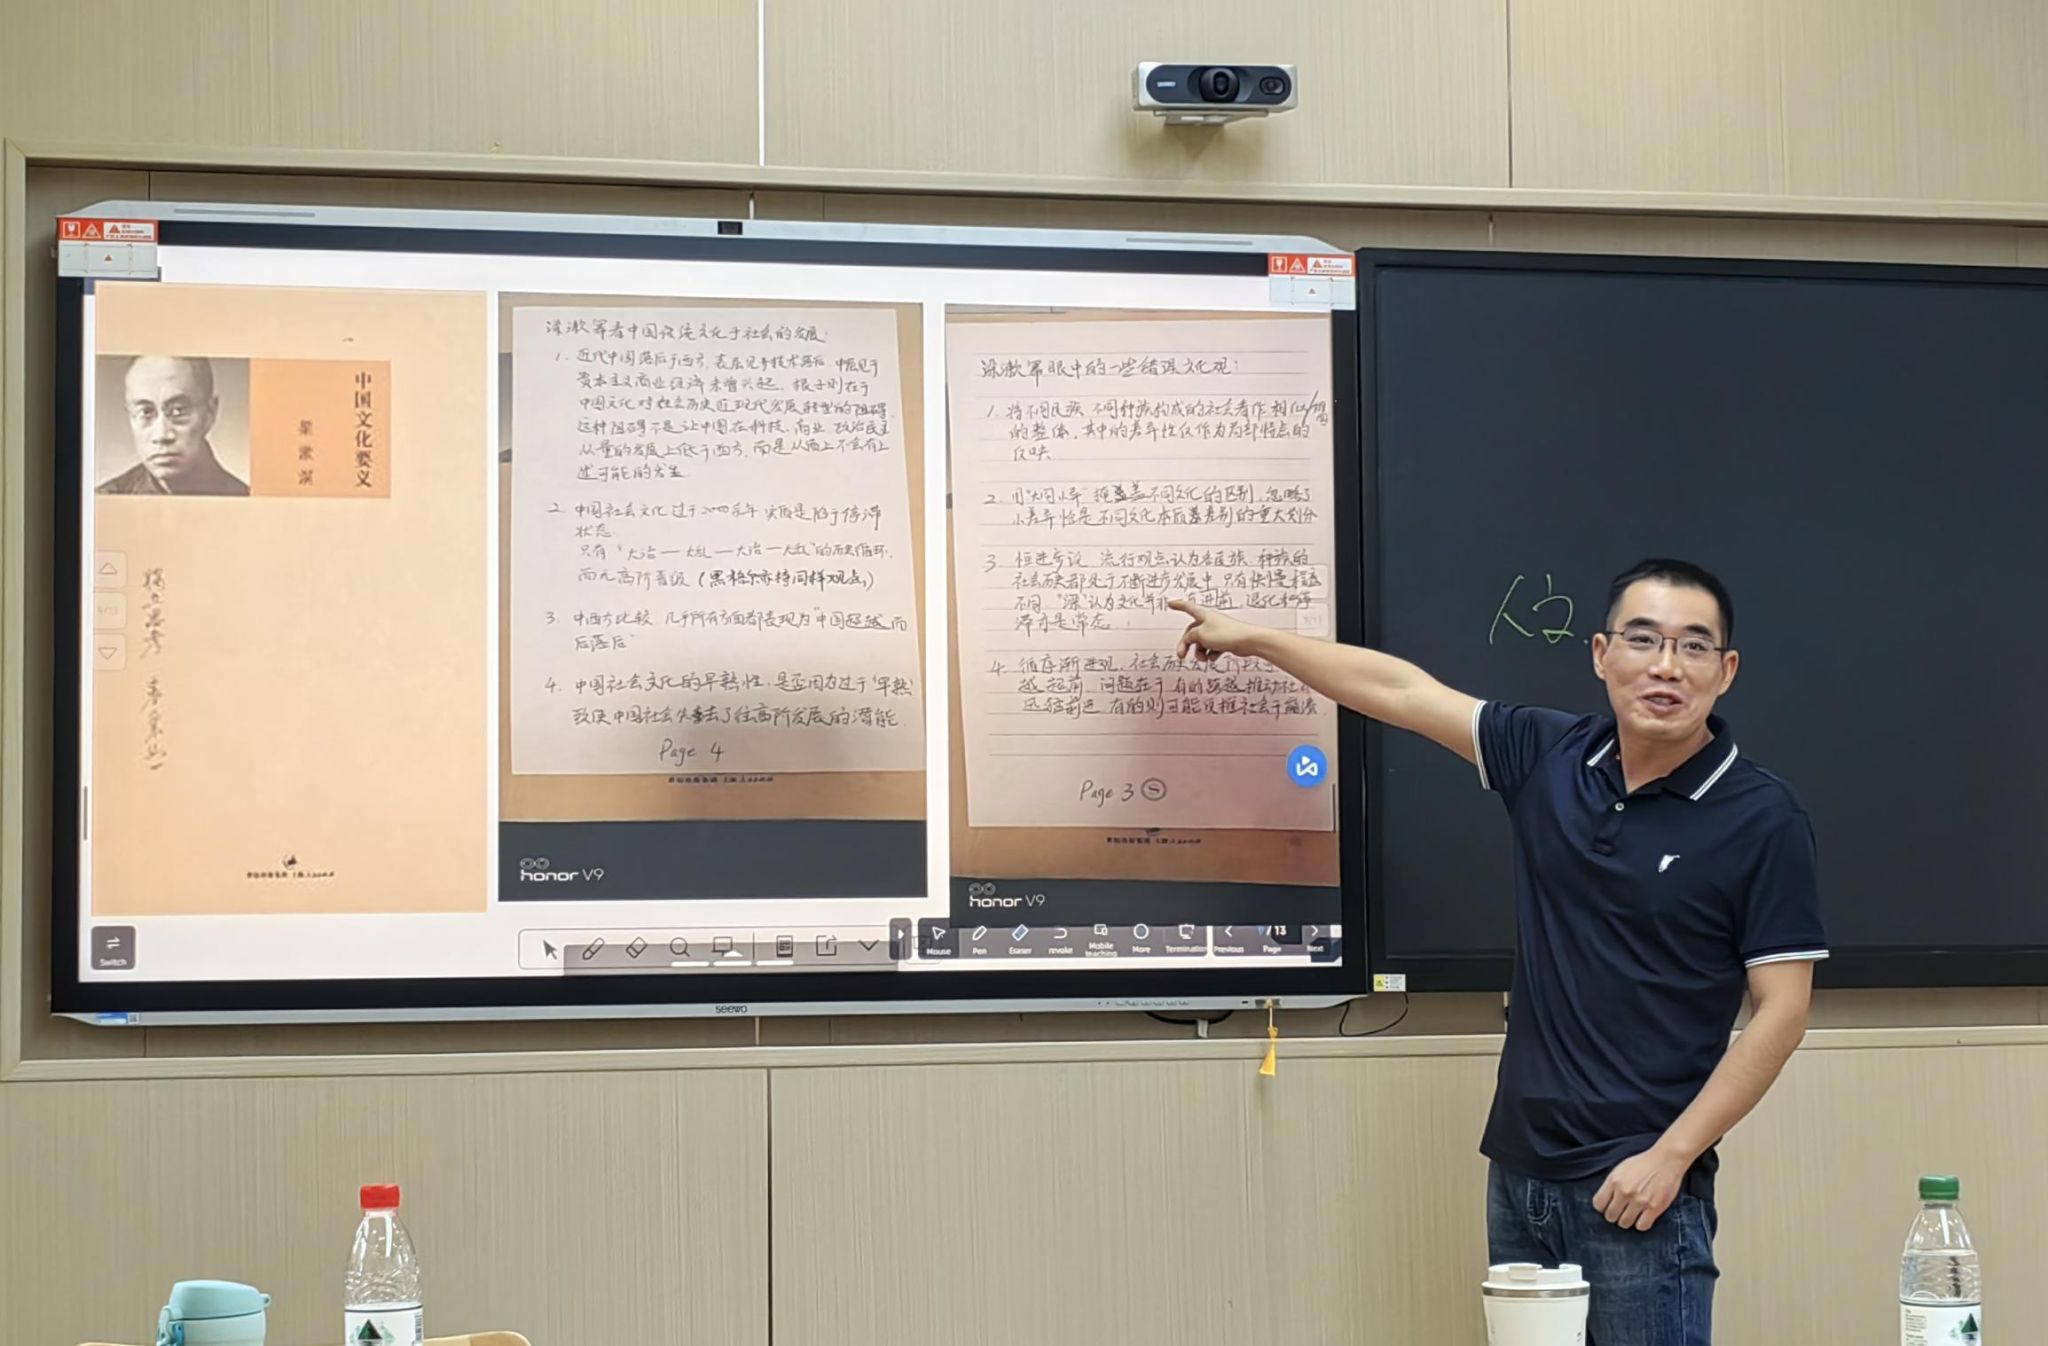 中国文化要义
梁漱溟
独立思考
梁漱溟看中国传统文化于社会的发展:
1. 近代中国落后于西方,表层见于技术落后,中层见于
资本主义商业经济未曾兴起,根子则在于
中国文化对社会历史近现代发展转型的阻碍.
这种阻碍不是让中国在科技、商业、政治民主
从量的发展上低于西方,而是从质上不会有上
述可能的发生
2. 中国社会文化过于2000多年实质是陷于停滞
状态.
只有“大治—大乱—大治—大乱”的历史循环,
而无高阶晋级(黑格尔亦持同样观点)
3. 中西方比较,几乎所有方面都表现为“中国超越而
后落后”
4. 中国社会文化的早熟性,是否因为过于‘早熟’
致使中国社会失去了往高阶发展的潜能.
Page 4
honor V9
梁漱溟眼中的一些错误文化观:
1. 将不同民族、不同种族构成的社会看作相似/相同
的整体,其中的差异性仅作为局部特点的
反映
2. 用“大同小异”掩盖不同文化的区别,忽略了
小差异恰是不同文化本质差别的重大划分
3 恒进步论 流行观点认为各民族、种族的
社会历史都处于不断进步发展中,只有快慢程度
不同.“梁”认为文化并非一直进前,退化和停
滞亦是常态.
4. 循序渐进观,社会历史发展
越超前,问题在于有的跨越推动社
迅猛前进 有的则可能反推社会于崩溃.
Page 3
honor V9
Switch
Mouse
Pen
Eraser
revoke
Mobile teaching
More
Termination
Previous
/13
Page
Next
seewo
人文.